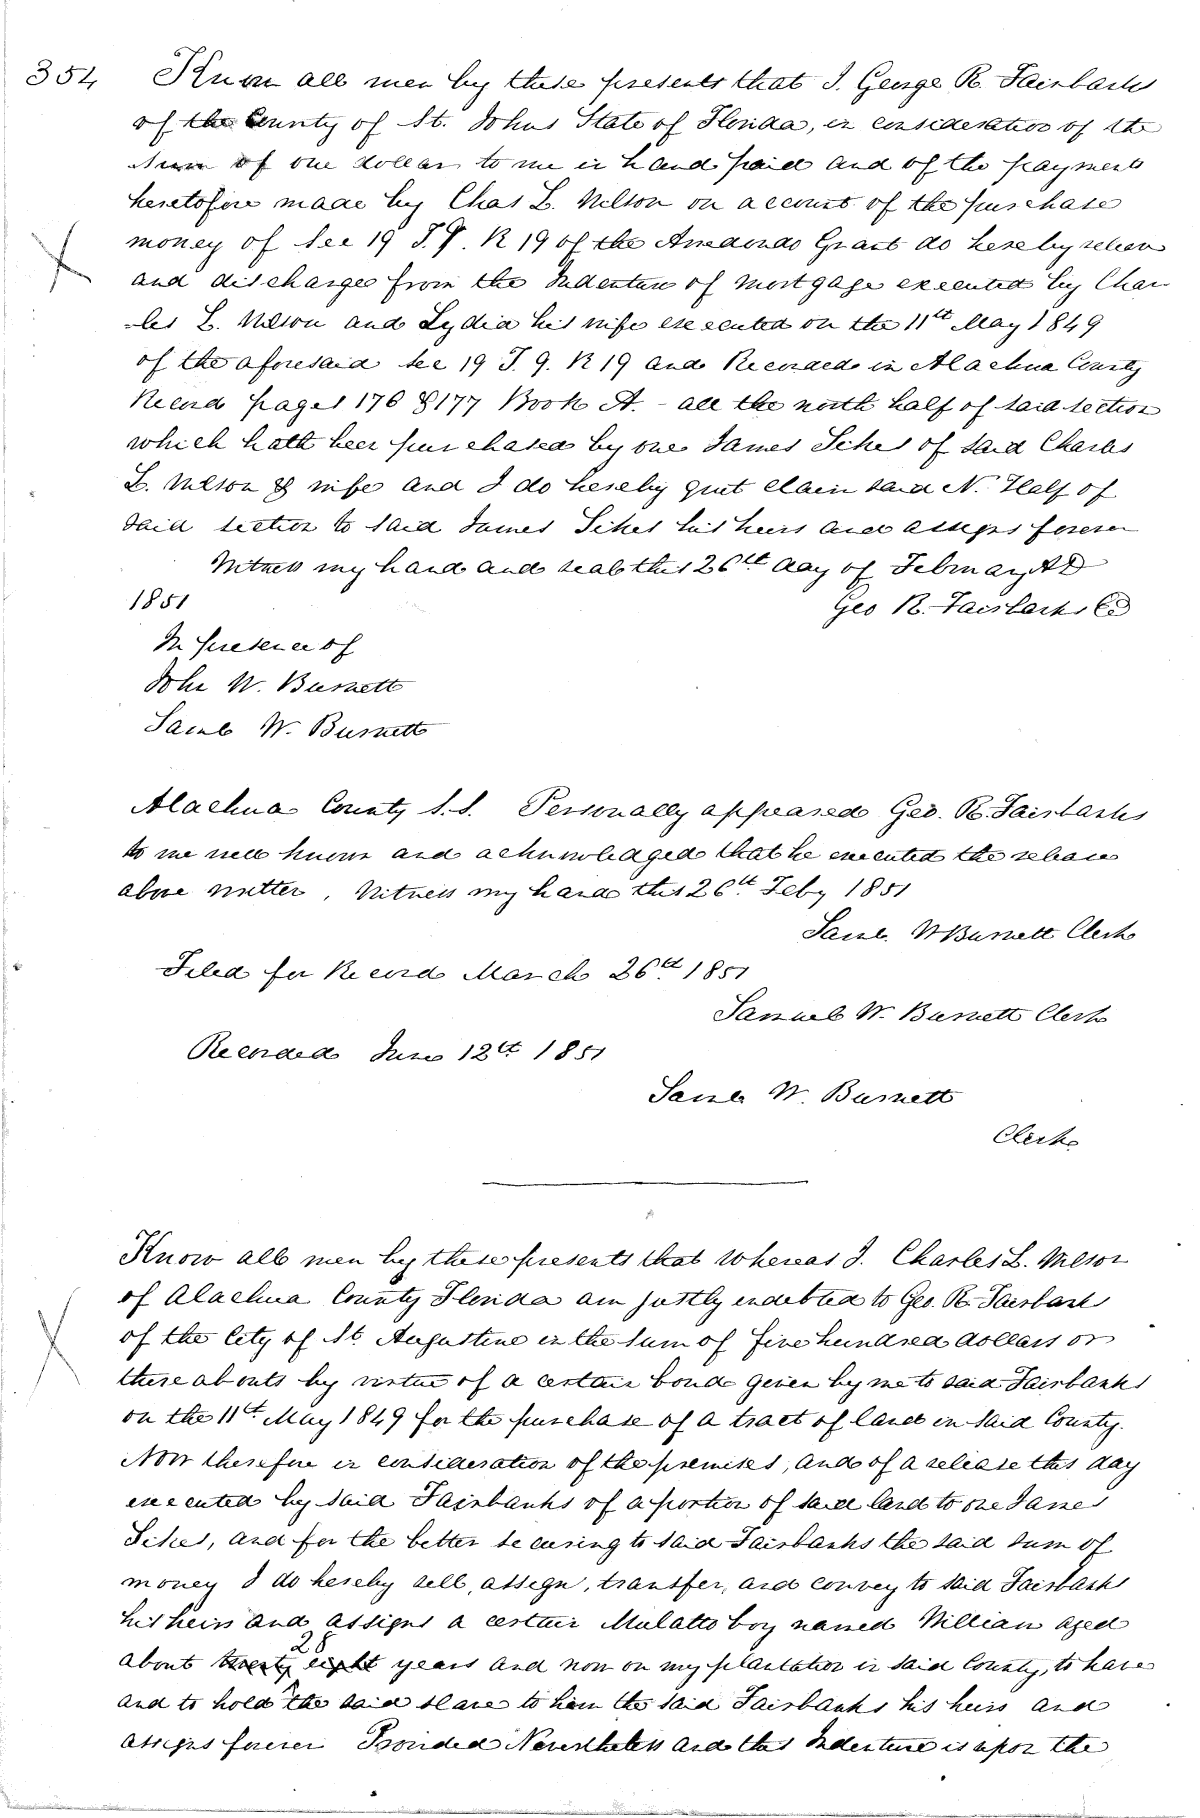 354 Know all men by these presents that I. George R. Fairbanks
of the County of St. Johns State of Florida, in consideration of the
sum of one dollar to me in hand paid and of the payment
heretofore made by Chas L. Nelson on account of the purchase
money of Sec 19 T. 9. R 19 of the Arredondo Grant do hereby release
and discharge from the Indenture of mortgage executed by Char
-les L. Nelson and Lydia his wife executed on the 11th May 1849
of the aforesaid Sec 19 T. 9. R 19 and Recorded in Alachua County
Record pages 176 & 177 Book A. - all the north half of said section
which hath been purchased by one James Sikes of said Charles
L. Nelson & wife and I do hereby quit claim said N. Half of
said section to said James Sikes his heirs and assigns forever
Witness my hand and seal this 26th day of February AD
1851
Geo R. Fairbanks
In presence of
John W. Burnett
Saml W. Burnett
Alachua County S.S. Personally appeared Geo. R. Fairbanks
to me well known and acknowledged that he executed the release
above written. Witness my hand this 26th Feby 1851
Saml. W Burnett Clerk
Filed for Record March 26th 1851
Samuel W. Burnett Clerk
Recorded June 12th 1851
Saml W. Burnett
Clerk
Know all men by these presents that whereas I. Charles L. Nelson
of Alachua County Florida am justly indebted to Geo. R. Fairbanks
of the City of St. Augustine in the sum of five hundred dollars or
thereabouts by virtue of a certain bond given by me to said Fairbanks
on the 11th May 1849 for the purchase of a tract of land in said County.
Now therefore in consideration of the premises, and of a release this day
executed by said Fairbanks of a portion of said land to one James
Sikes, and for the better securing to said Fairbanks the said sum of
money I do hereby sell, assign, transfer, and convey to said Fairbanks
his heirs and assigns a certain Mulatto boy named William aged
about twenty eight 28 years and now on my plantation in said County, to have
and to hold the said slave to him the said Fairbanks his heirs and
assigns forever Provided Nevertheless and this Indenture is upon the